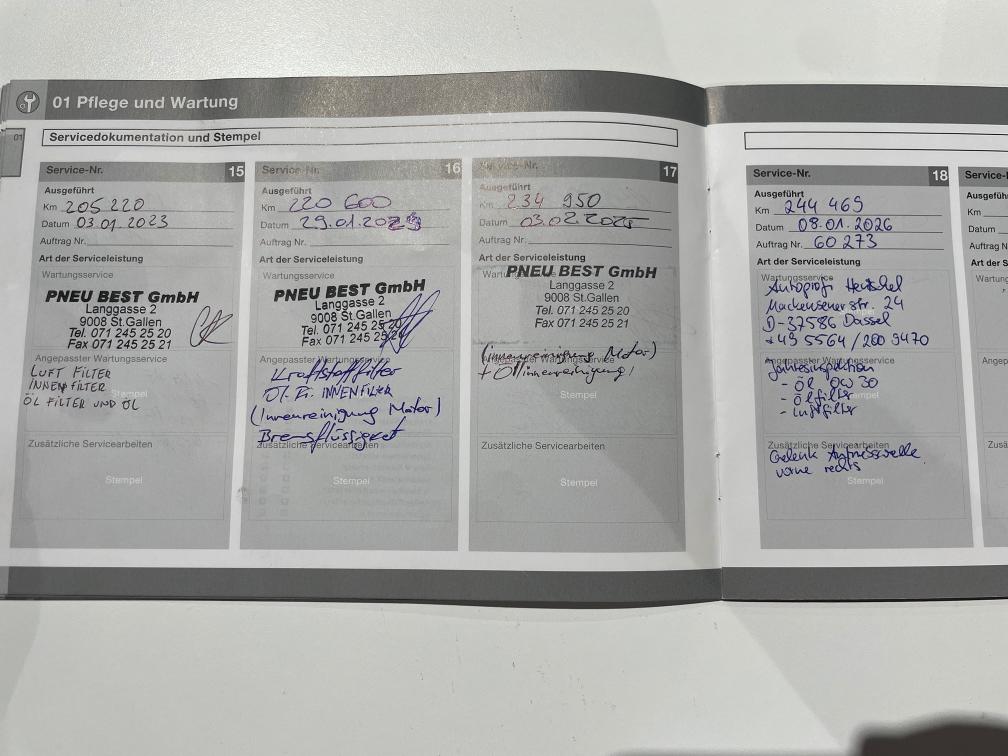 01 Pflege und Wartung
01
Servicedokumentation und Stempel
Service-Nr. 15
Ausgeführt
Km 205 220
Datum 03.01.2023
Auftrag Nr.
Art der Serviceleistung
Wartungsservice
PNEU BEST GmbH
Langgasse 2
9008 St.Gallen
Tel. 071 245 25 20
Fax 071 245 25 21
Angepasster Wartungsservice
LUFT FILTER
INNENFILTER
ÖL FILTER UND ÖL
Stempel
Zusätzliche Servicearbeiten
Stempel
Service-Nr. 16
Ausgeführt
Km 220 600
Datum 29.01.202
Auftrag Nr.
Art der Serviceleistung
Wartungsservice
PNEU BEST GmbH
Langgasse 2
9008 St.Gallen
Tel. 071 245 25 20
Fax 071 245 25 21
Angepasster Wartungsservice
Kraftstofffilter
INNENFILTER
(Innenreinigung Motor)
Bremsflüssigkeit
Zusätzliche Servicearbeiten
Stempel
Service-Nr. 17
Ausgeführt
Km 234 950
Datum 03.02.2025
Auftrag Nr.
Art der Serviceleistung
PNEU BEST GmbH
Langgasse 2
9008 St.Gallen
Tel. 071 245 25 20
Fax 071 245 25 21
(Innenreinigung Motor)
Angepasster Wartungsservice
Stempel
Zusätzliche Servicearbeiten
Stempel
Service-Nr. 18
Ausgeführt
Km 244 469
Datum 08.01.2026
Auftrag Nr. 60 273
Art der Serviceleistung
Wartungsservice
Autoprofi Henschel
Mackensener str. 24
D-37586 Dassel
+49 5564 / 200 9470
Angepasster Wartungsservice
Jahresinspektion
- Öl 0W30
- Ölfilter
- Luftfilter
Stempel
Zusätzliche Servicearbeiten
Gelenk Antriebswelle
vorne rechts
Stempel
Service-
Ausgeführt
Km
Datum
Auftrag Nr.
Art der S
Wartungs
Angepas
Zusä